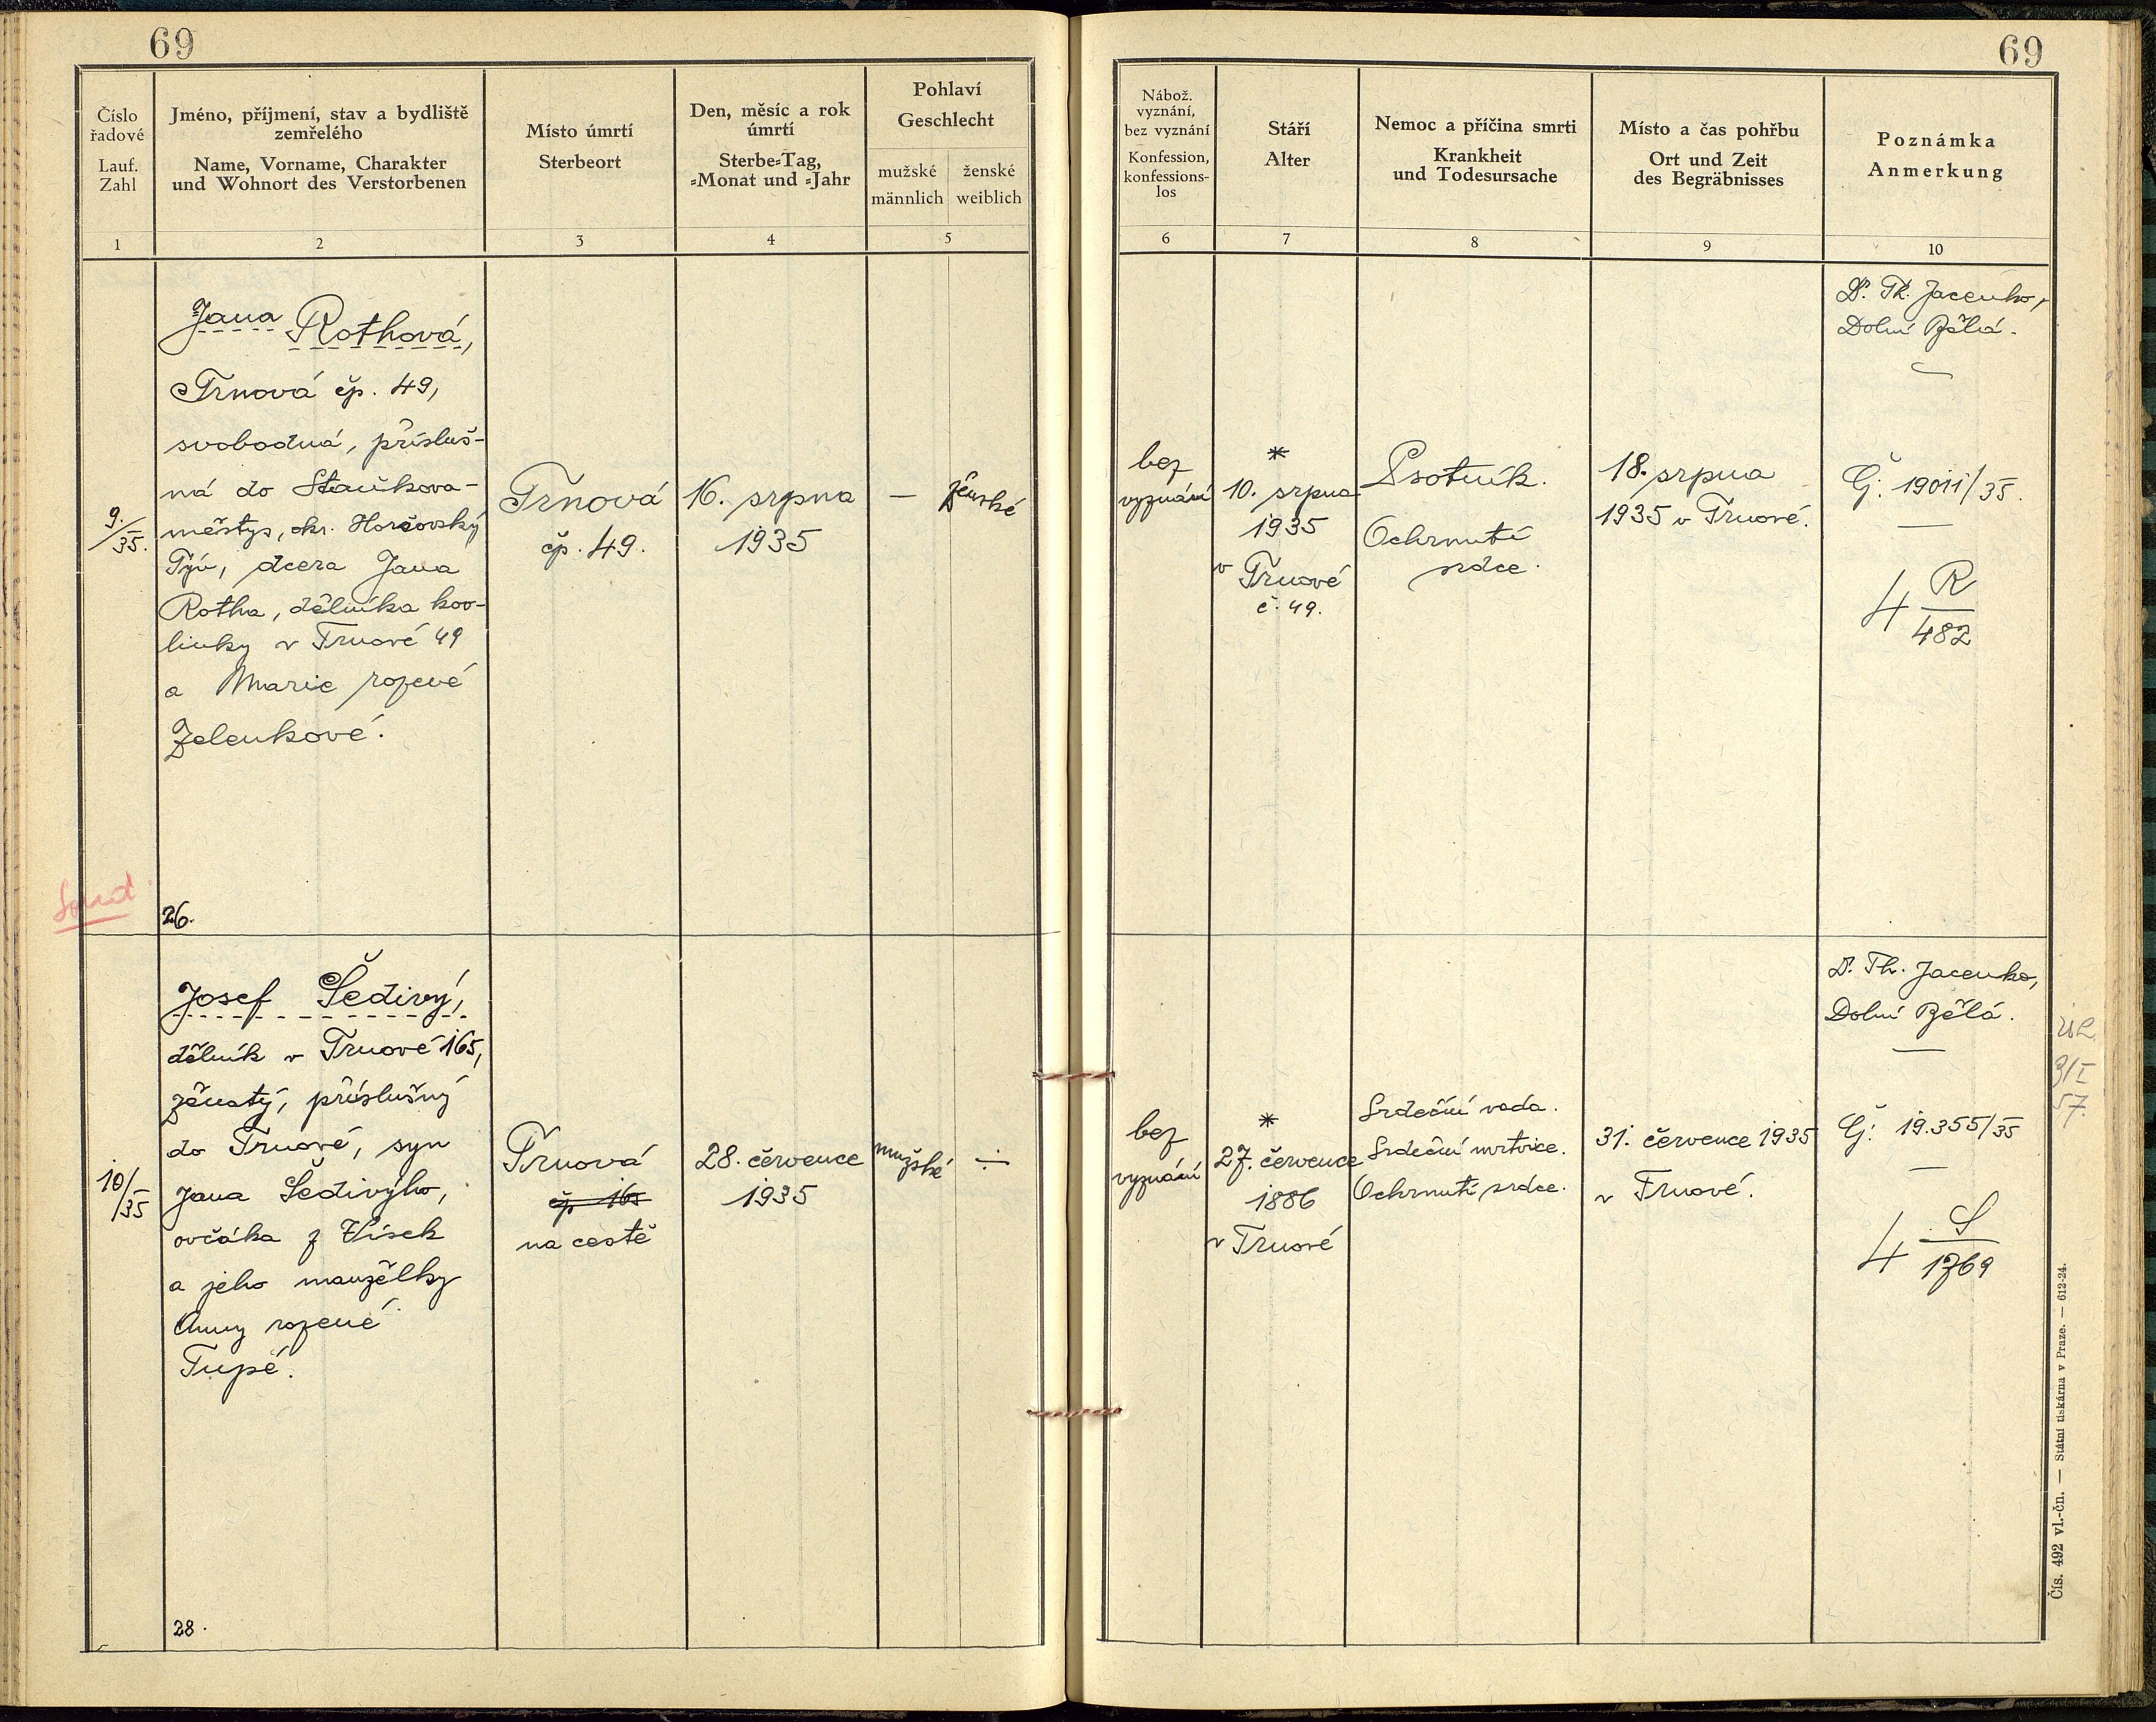 69
69
Číslo
řadové
Lauf.
Zahl
Jméno, příjmení, stav a bydliště
zemřelého
Name, Vorname, Charakter
und Wohnort des Verstorbenen
Místo úmrtí
Sterbeort
Den, měsíc a rok
úmrtí
Sterbe-Tag,
-Monat und -Jahr
Pohlaví
Geschlecht
mužské
männlich
ženské
weiblich
Nábož.
vyznání,
bez vyznání
Konfession,
konfessions-
los
Stáří
Alter
Nemoc a příčina smrti
Krankheit
und Todesursache
Místo a čas pohřbu
Ort und Zeit
des Begräbnisses
Poznámka
Anmerkung
1
2
3
4
5
6
7
8
9
10
9./35.
Jana Rothová,
Trnová čp. 49,
svobodná, přísluš-
ná do Staňkova-
městys, okr. Horšovský
Týn, dcera Jana
Rotha, dělníka kao-
linky v Trnové 49
a Marie rozené
Zelenkové.
26.
Trnová
čp. 49.
16. srpna
1935
—
ženské
bez
vyznání
*
10. srpna
1935
v Trnové
č. 49.
Psotník.
Ochrnutí
srdce.
18. srpna
1935 v Trnové.
Dr. Th. Jacenko,
Dolní Bělá.
Čj. 19011/35.
4 R/482
10/35
Josef Šedivý,
dělník v Trnové 165,
ženatý, příslušný
do Trnové, syn
Jana Šedivýho,
ovčáka z Vísek
a jeho manželky
Anny rozené
Tupé.
28.
Trnová
čp 165
na cestě
28. července
1935
mužské
÷
bez
vyznání
*
27. července
1886
v Trnové
Srdeční vada.
Srdeční mrtvice.
Ochrnutí srdce.
31. července 1935
v Trnové.
Dr. Th. Jacenko,
Dolní Bělá.
Čj. 19.355/35
4 S/1769
Čís. 492 vl.-čn. — Státní tiskárna v Praze. — 612-24.